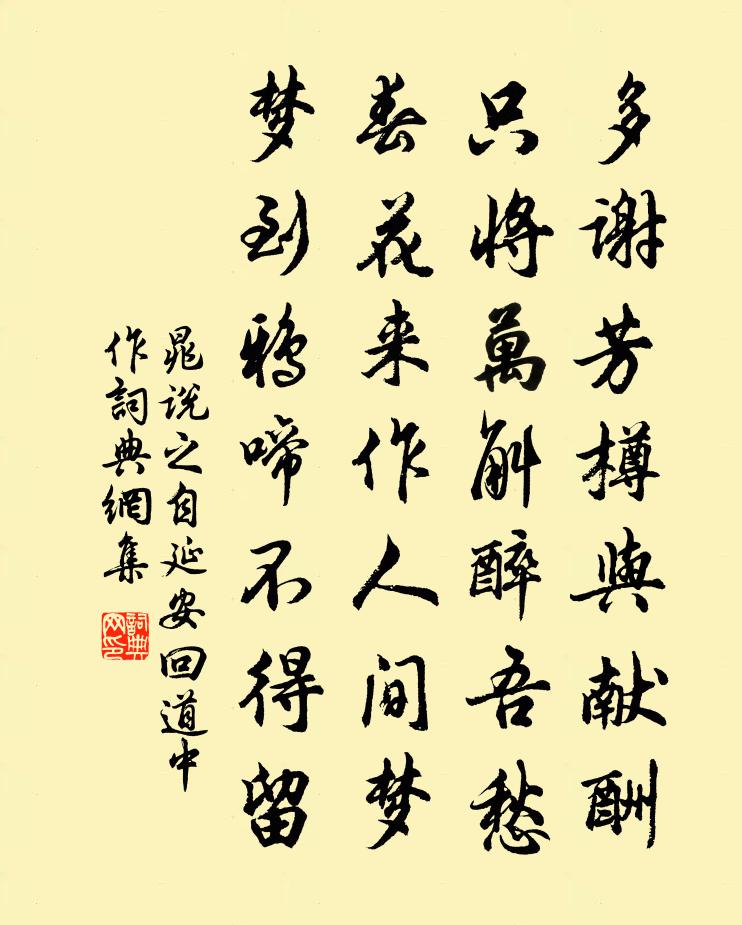 多谢芳樽與献酬
只將萬斛醉吾愁
春花来作人间梦
梦到鸦啼不得留
晁说之自延安回道中
作詞典網集
詞典网印